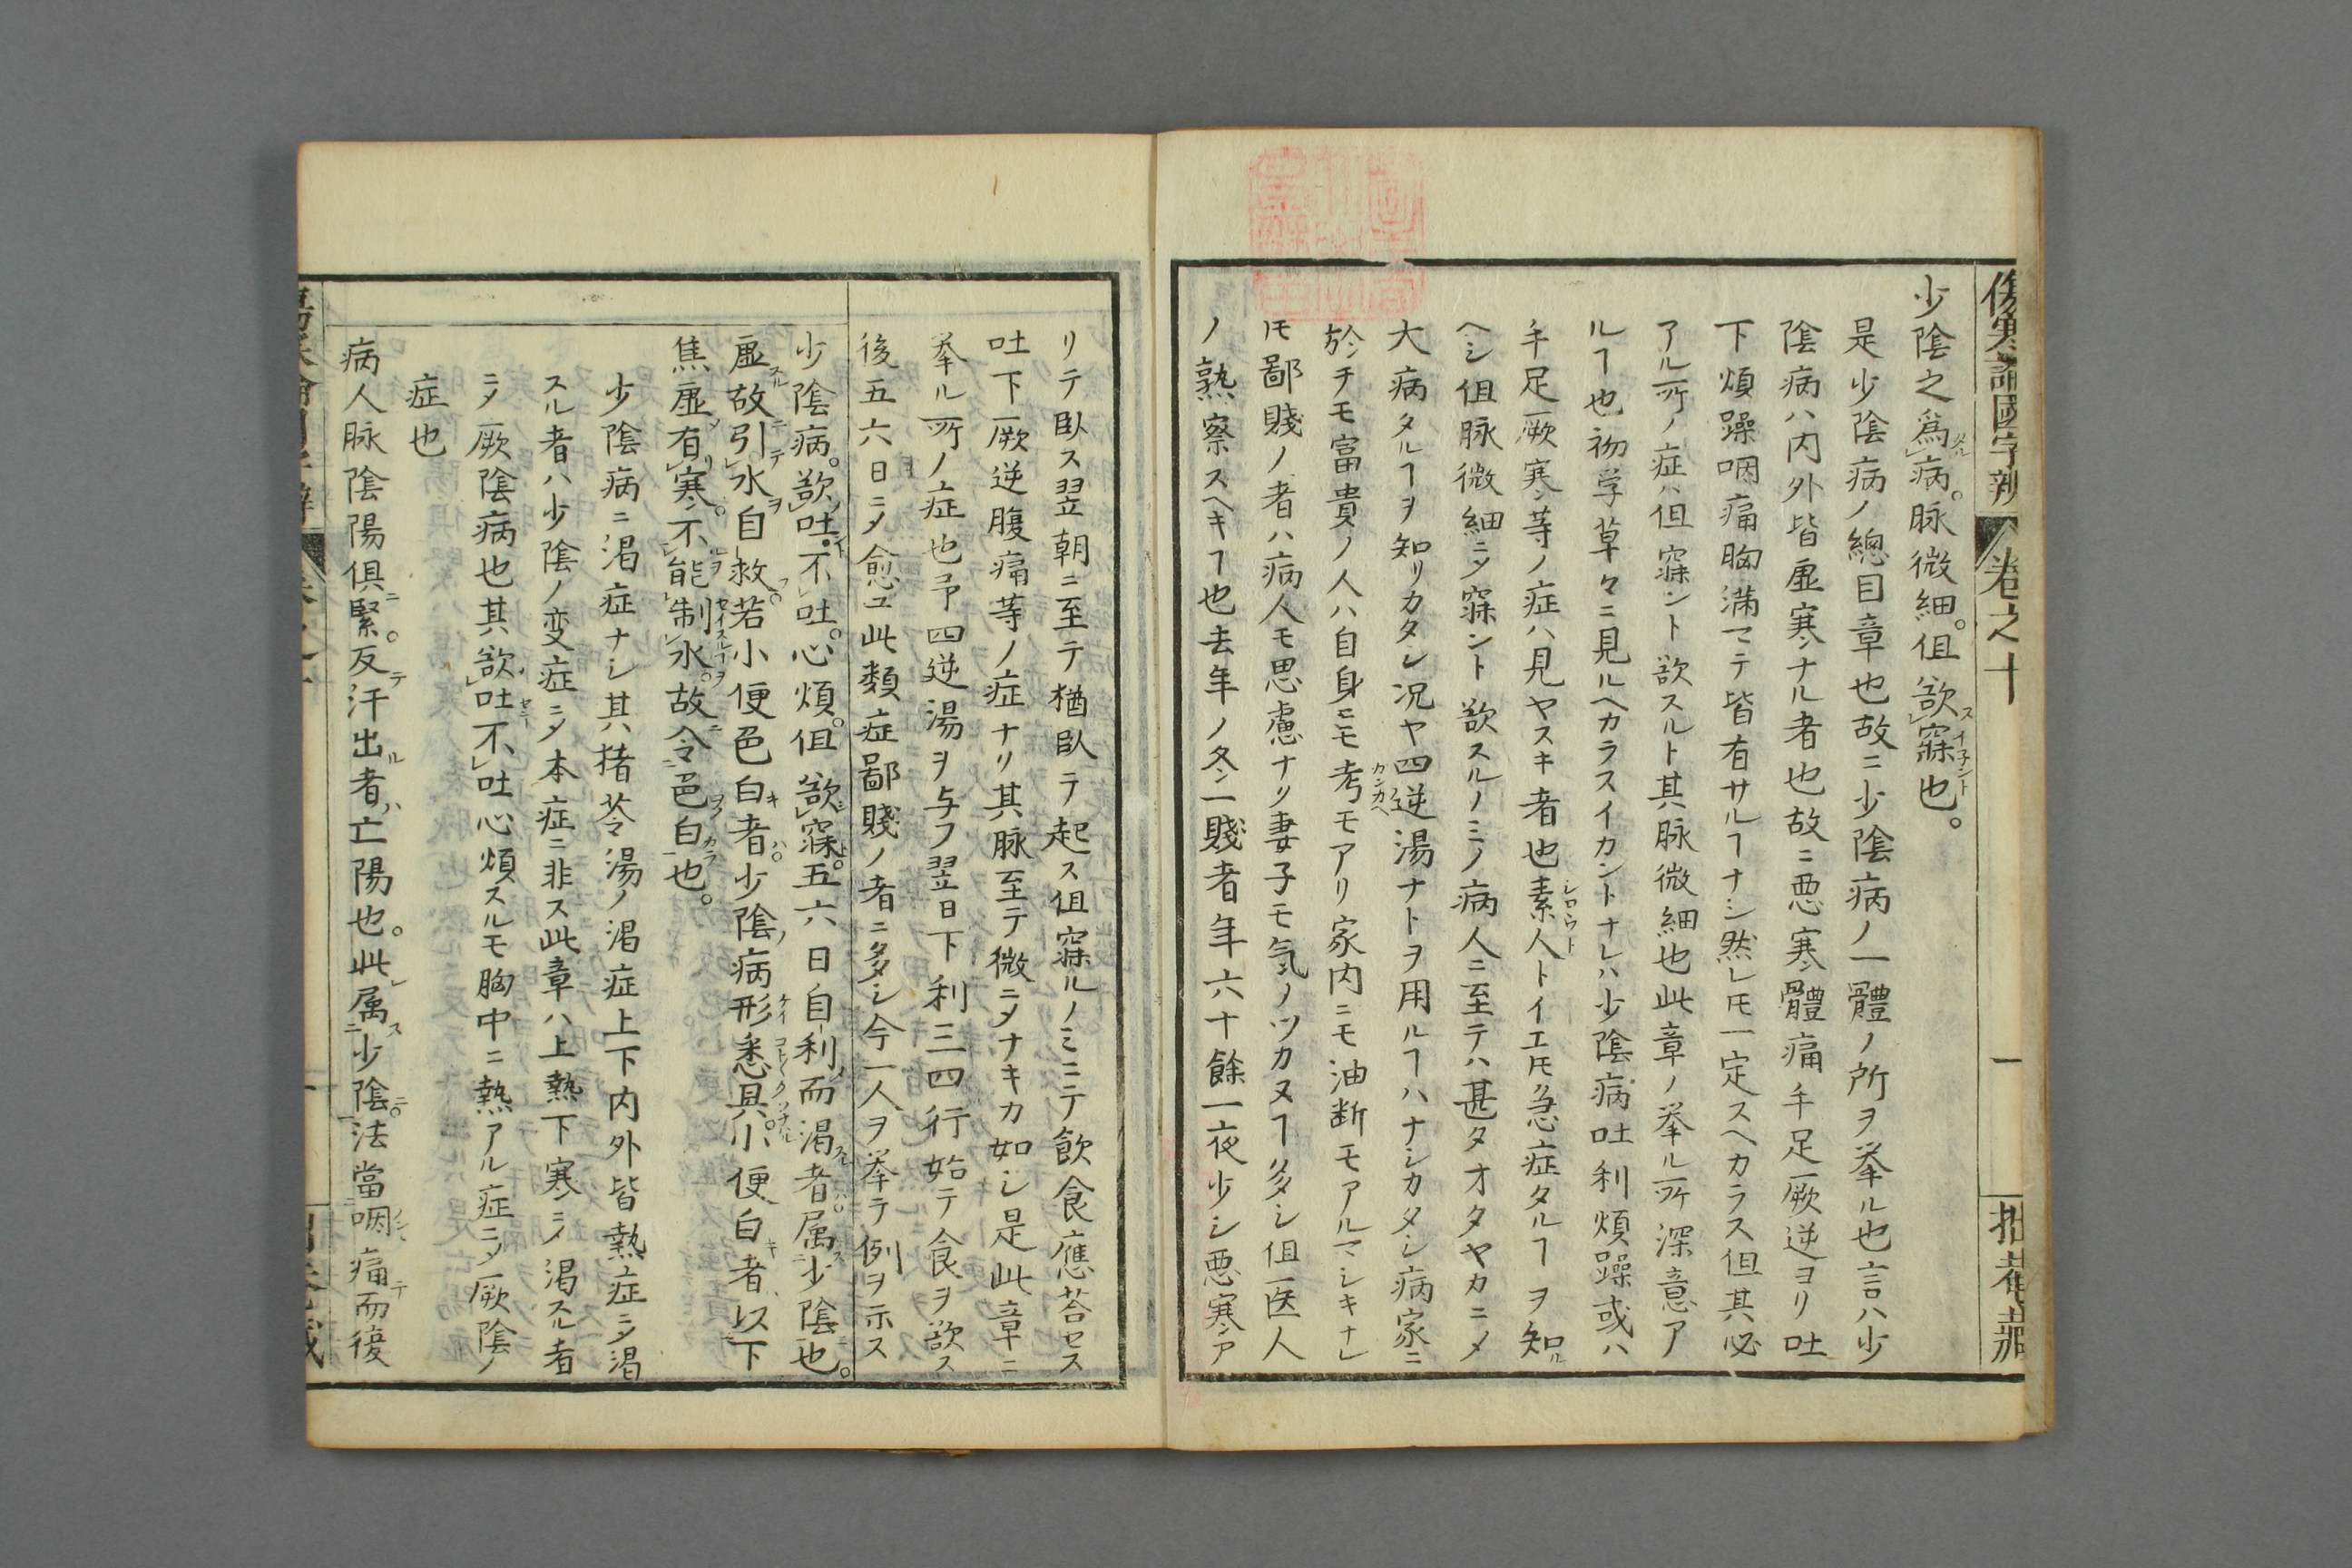 傷寒論國字辨 卷之十 一
少陰之爲病。脉微細。但欲寐也。
是少陰病ノ總目章也故ニ少陰病ノ一體ノ所ヲ挙ル也言ハ少
陰病ハ内外皆虚寒ナル者也故ニ悪寒體痛手足厥逆ヨリ吐
下煩躁咽痛胸満マテ皆有サルヿナシ然レㇳモ一定スヘカラス但其必
アル所ノ症ハ但寐ント欲スルト其脉微細也此章ノ挙ル所深意ア
ルヿ也初学草々ニ見ルヘカラスイカントナレハ少陰病吐利煩躁或ハ
手足厥寒等ノ症ハ見ヤスキ者也素人トイエㇳモ急症タルヿヲ知ル
ヘシ但脉微細ニメ寐ント欲スルノミノ病人ニ至テハ甚タオタヤカニメ
大病タルヿヲ知リカタシ况ヤ四逆湯ナトヲ用ルヿハナシカタシ病家ニ
於テモ富貴ノ人ハ自身ニモ考モアリ家内ニモ油断モアルマシキナレ
ㇳモ鄙賤ノ者ハ病人モ思慮ナク妻子モ気ノツカヌヿ多シ但医人
ノ熟察スヘキヿ也去年ノ冬一賤者年六十餘一夜少シ悪寒ア
リテ臥ス翌朝ニ至テ猶臥テ起ス但寐ルノミニテ飲食應荅セス
吐下厥逆腹痛等ノ症ナリ其脉至テ微ニメナキカ如シ是此章ニ
挙ル所ノ症也予四逆湯ヲ与フ翌日下利三四行始テ食ヲ欲ス
後五六日ニメ愈ユ此類症鄙賤ノ者ニ多シ今一人ヲ挙テ例ヲ示ス
少陰病。欲吐。不吐。心煩。但欲寐。五六日自利而渇者属少陰也。
虚故引水自救。若小便色白者。少陰病形悉具。小便白者以下
焦虚有寒。不能制水。故令色白也。
少陰病ニ渇症ナシ其猪苓湯ノ渇症上下内外皆熱症ニメ渇
スル者ハ少陰ノ変症ニメ本症ニ非ス此章ハ上熱下寒ニメ渇スル者
ニメ厥陰病也其欲吐不吐心煩スルモ胸中ニ熱アル症ニメ厥陰ノ
症也
病人脉陰陽倶緊。反汗出者亡陽也。此属少陰。法當咽痛而復